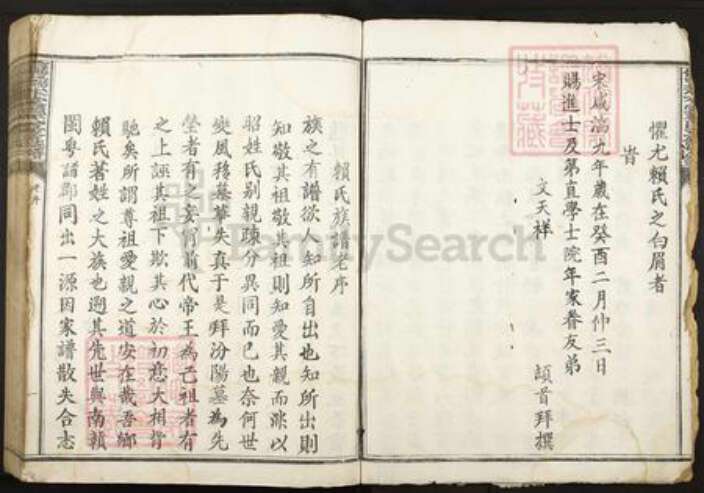 懼尤賴氏之白眉者
旹
宋咸淳九年歲在癸酉二月仲三日
賜進士及第直學士院年家眷友弟
文天祥 頓首拜撰
賴氏族譜老序
族之有譜欲人知所自出也知所出則
知敬其祖敬其祖則知愛其親而派以
昭姓氏别親疎分異同而已也奈何世
變風移纂華失真于是拜汾陽墓為先
塋者有之妄何前代帝王為己祖者有
之上誣其祖下欺其心於初意大相背
馳矣所謂尊祖愛親之道安在哉吾鄉
賴氏著姓之大族也遡其先世與南贛
閩粵諸郡同出一源因家譜散失合志
FamilySearch